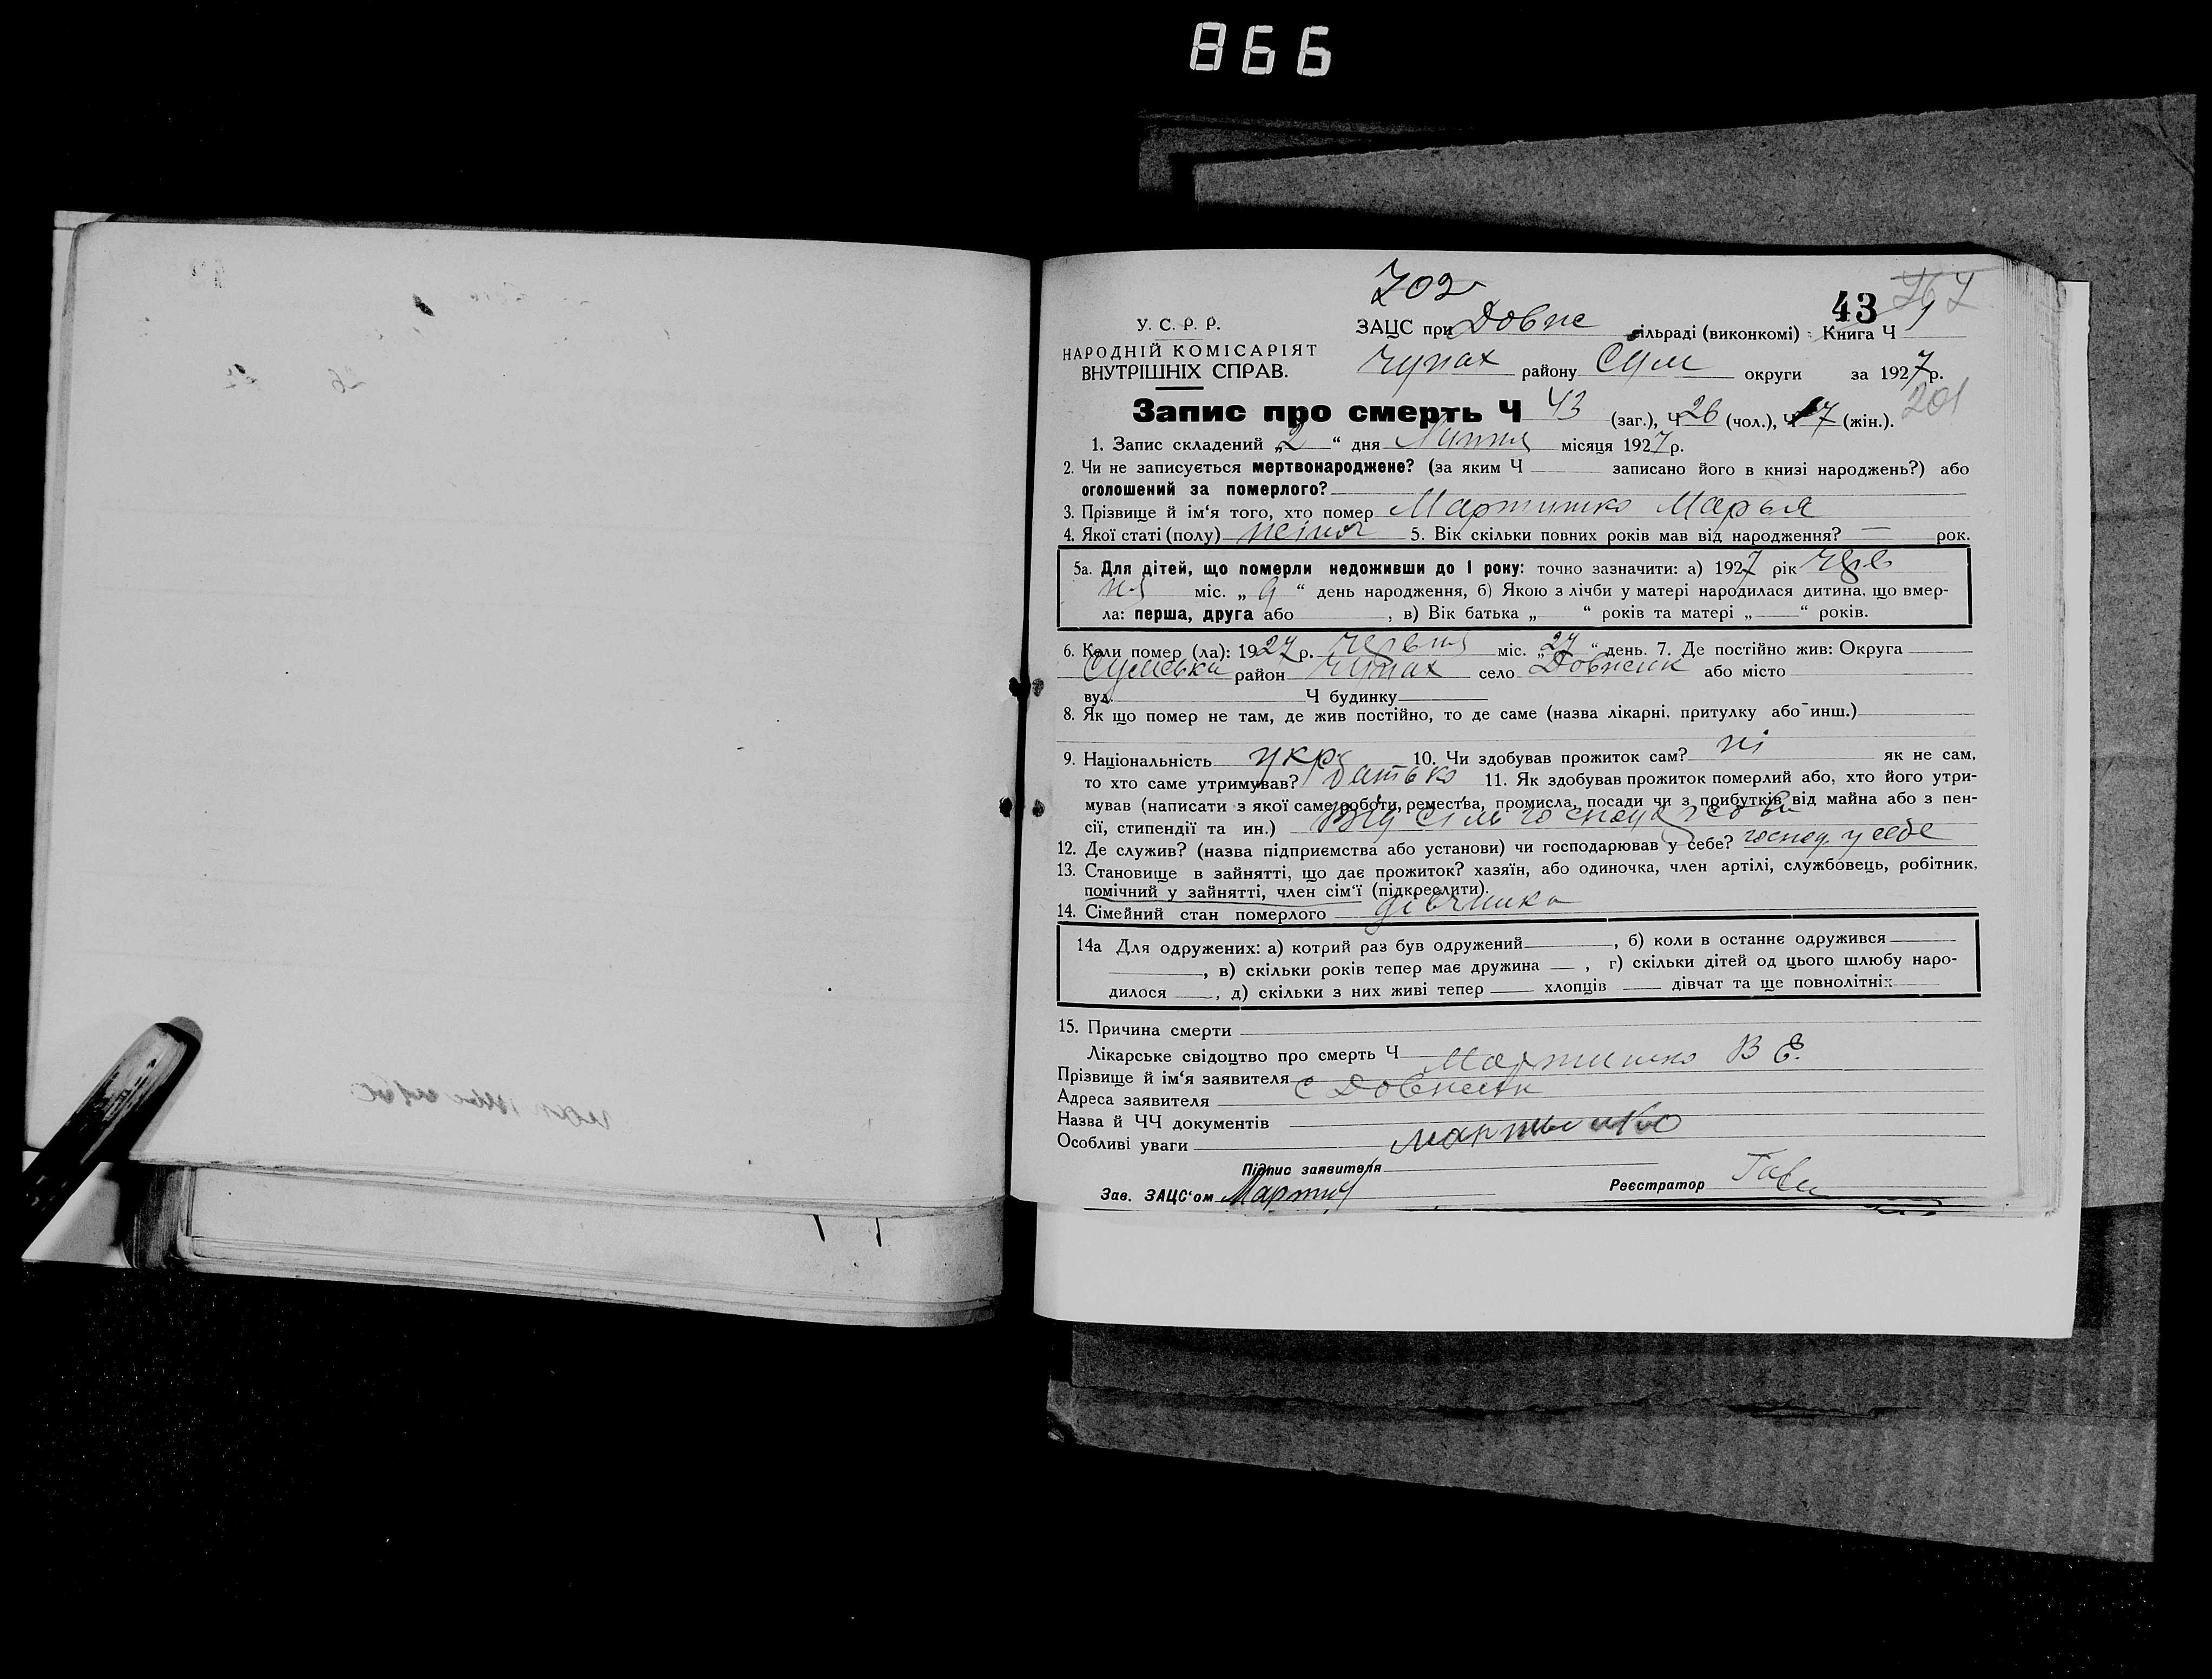 866
702
43
У. С. Р. Р.
ЗАЦС при Довж сільраді (виконкомі) Книга Ч
НАРОДНІЙ КОМІСАРІЯТ
ВНУТРІШНІХ СПРАВ.
Чупах району Сум округи за 1927 р.
201
Запис про смерть Ч 43 (заг.), Ч 26 (чол.), Ч 17 (жін.).
1. Запис складений „2“ дня Липня місяця 1927 р.
2. Чи не записується мертвонароджене? (за яким Ч записано його в книзі народжень?) або
оголошений за померлого?
3. Прізвище й ім‘я того, хто помер Мартишко Марья
4. Якої статі (полу) жіноч 5. Вік скільки повних років мав від народження? — рок.
5а. Для дітей, що померли недоживши до 1 року: точно зазначити: а) 1927 рік черв
ня міс. „9“ день народження, б) Якою з лічби у матері народилася дитина, що вмер-
ла: перша, друга або , в) Вік батька „ “ років та матері „ “ років.
6. Коли помер (ла): 1927 р. червня міс. „27“ день. 7. Де постійно жив: Округа
Сумська район Чупах село Довжик або місто
вул. Ч будинку
8. Як що помер не там, де жив постійно, то де саме (назва лікарні, притулку або инш.)
9. Національність укр 10. Чи здобував прожиток сам? ні як не сам,
то хто саме утримував? батько 11. Як здобував прожиток померлий або, хто його утри-
мував (написати з якої саме роботи, ремества, промисла, посади чи з прибутків від майна або з пен-
сії, стипендії та ин.) Від сільгосподарства
12. Де служив? (назва підприємства або установи) чи господарював у себе? господ. у себе
13. Становище в зайнятті, що дає прожиток? хазяїн, або одиночка, член артілі, службовець, робітник,
помічний у зайнятті, член сім‘ї (підкреслити).
14. Сімейний стан померлого дівчинка
14а Для одружених: а) котрий раз був одружений , б) коли в останнє одружився
, в) скільки років тепер має дружина , г) скільки дітей од цього шлюбу наро-
дилося , д) скільки з них живі тепер хлопців дівчат та ще повнолітніх
15. Причина смерти
Лікарське свідоцтво про смерть Ч
Прізвище й ім‘я заявителя Мартишко В Е.
Адреса заявителя с Довжик
Назва й ЧЧ документів
Особливі уваги
Підпис заявителя Мартишко
Зав. ЗАЦС‘ом Мартиш Реєстратор